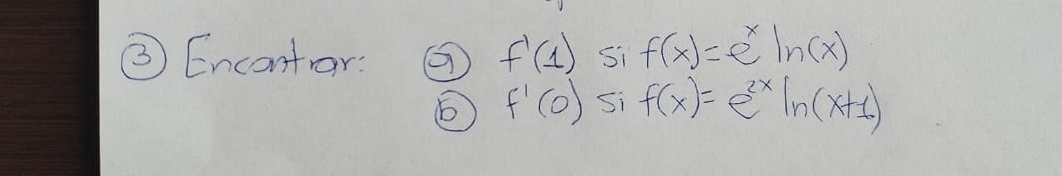 ③ Encontrar: ⓐ f'(1) si f(x)=eˣ ln(x)
ⓑ f'(0) si f(x)= e²ˣ ln(x+1)